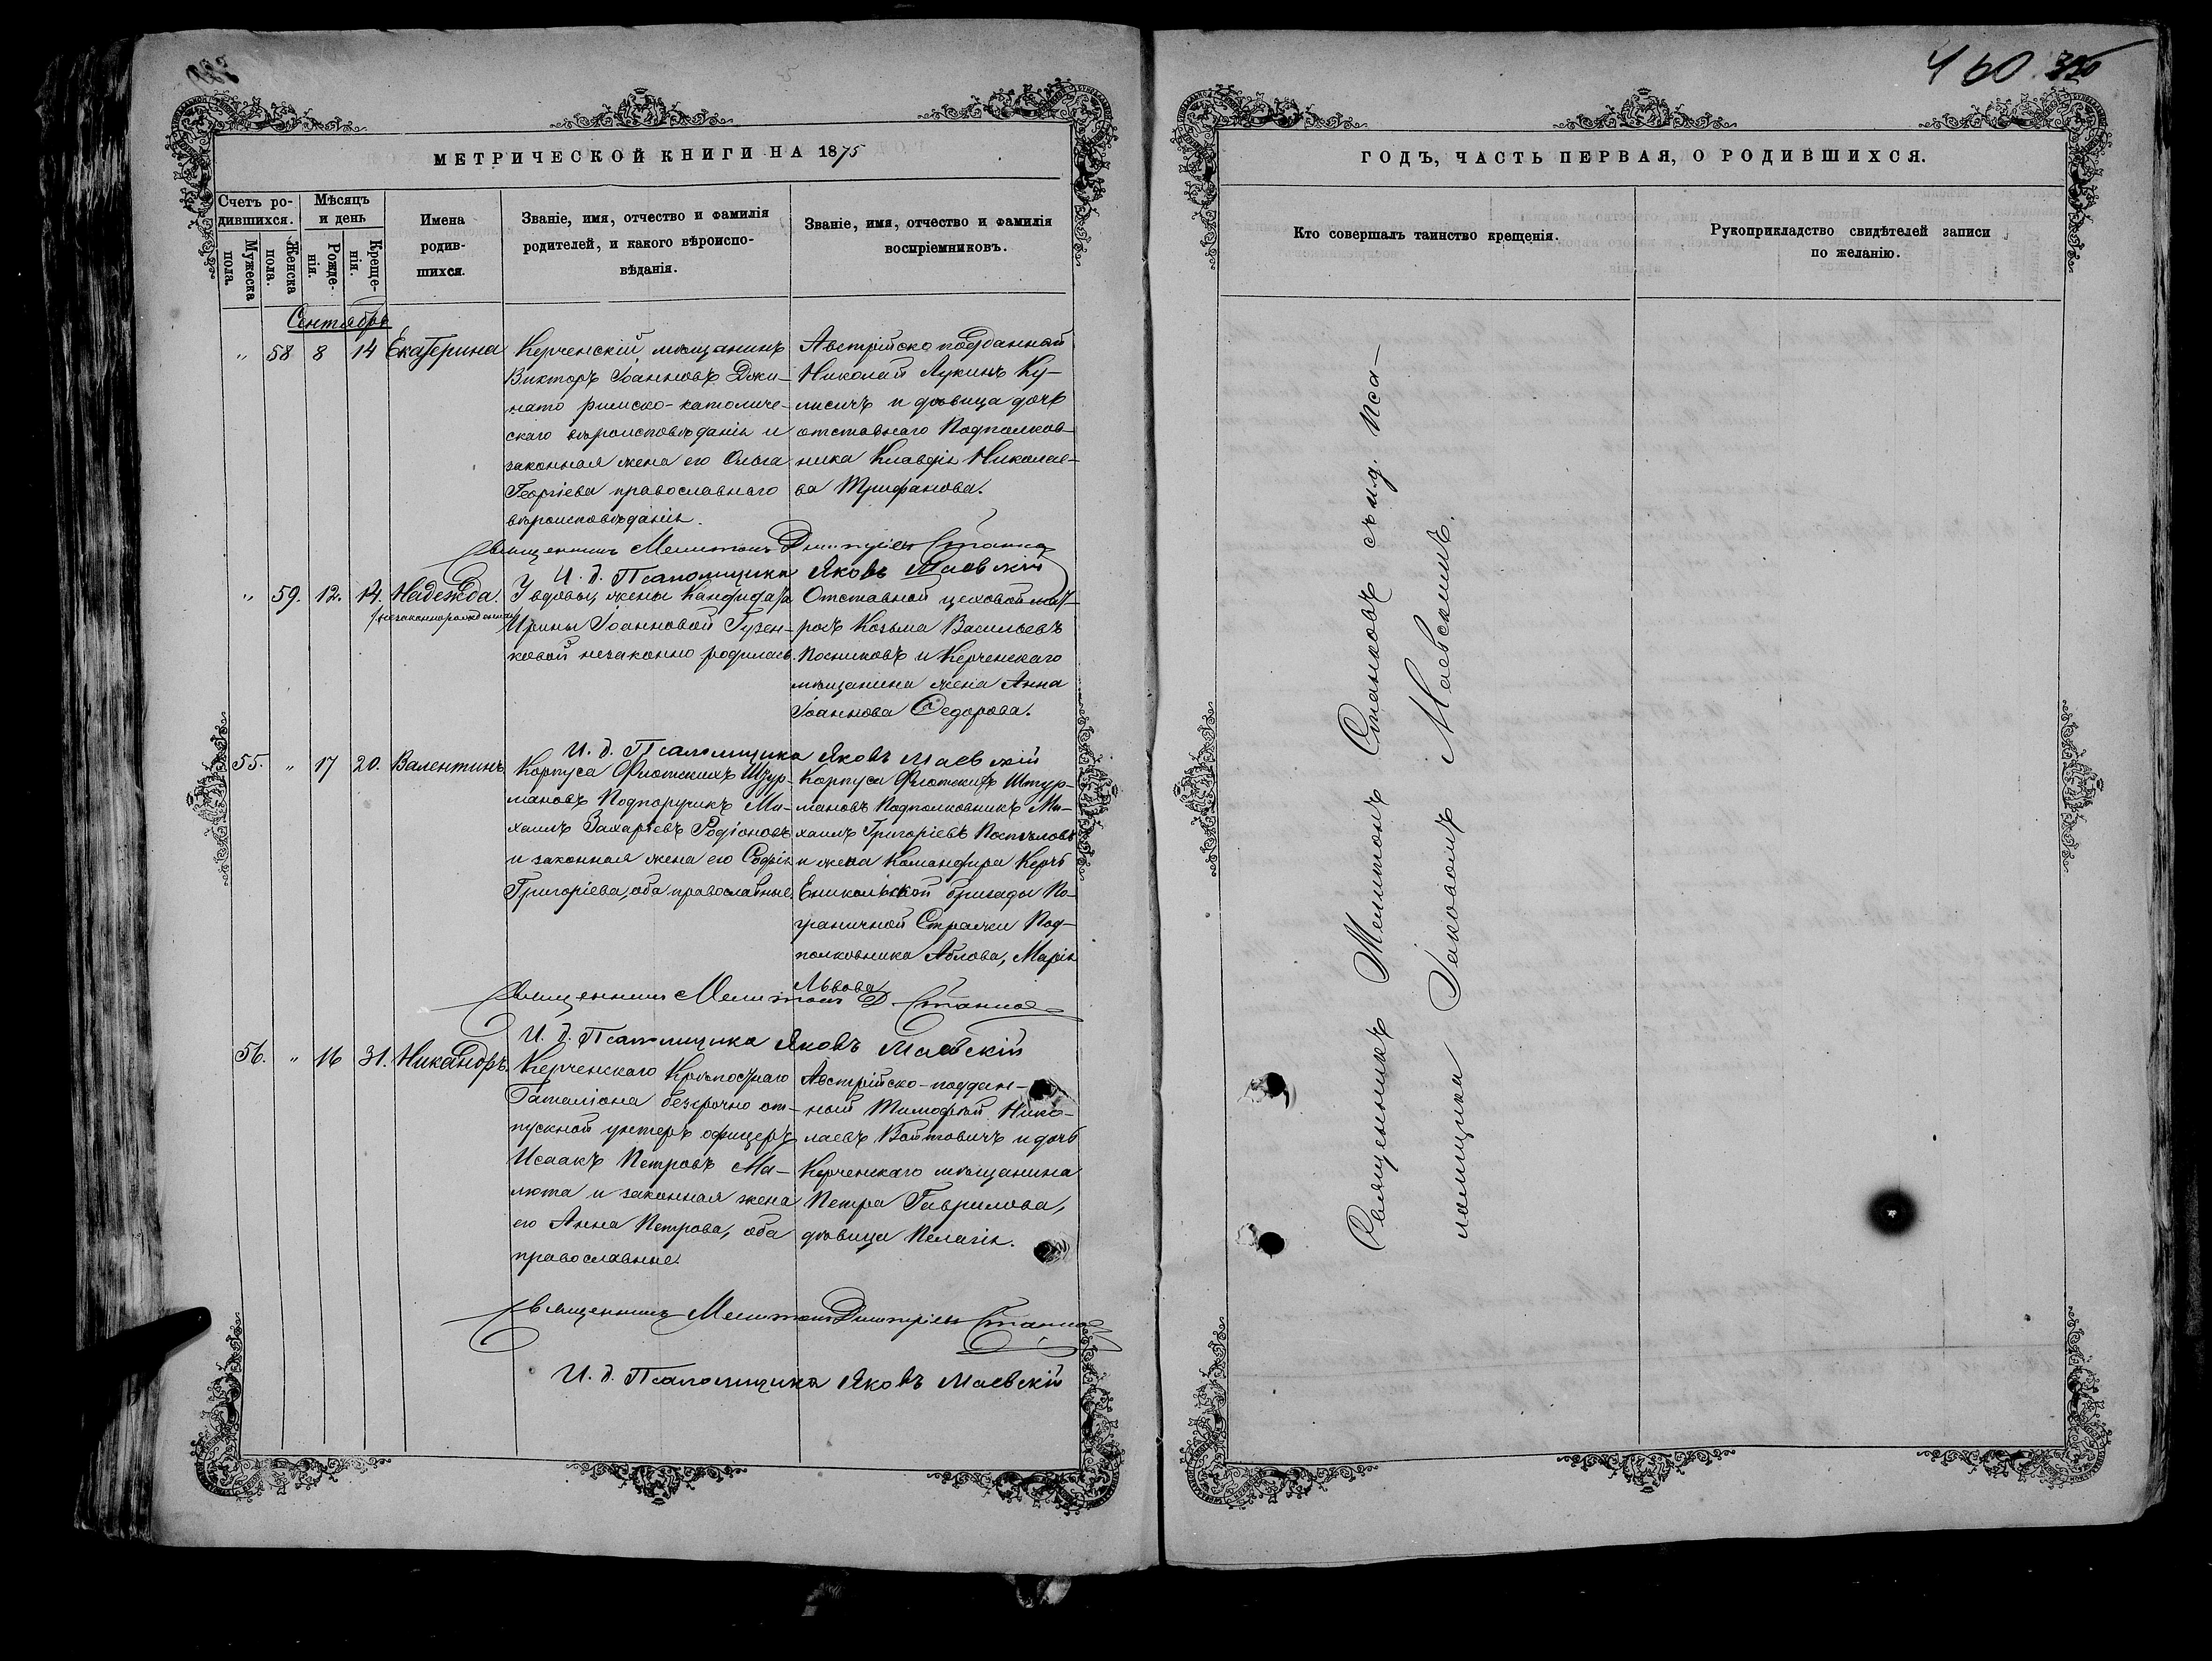 460 350
МЕТРИЧЕСКОЙ КНИГИ НА 1875
Счетъ ро-
дившихся.
Мужеска
пола.
Женска
пола.
Мѣсяцъ
и день
Рожде-
нія.
Креще-
нія.
Имена
родив-
шихся.
Званіе, имя, отчество и фамилія
родителей, и какого вѣроиспо-
вѣданія.
Званіе, имя, отчество и фамилія
воспріемниковъ.
Сентябрь
" 58 8 14 Екатерина
Керченскій мѣщанинъ
Викторъ Іоанновъ Джи-
нато римско-католиче-
скаго вѣроисповѣданія и
законная жена его Ольга
Георгіева православнаго
вѣроисповѣданія.
Австрійско подданной
Николай Лукинъ Ку-
лисичъ и дѣвица дочь
отставнаго Подполков-
ника Клавдія Николае-
ва Трифанова.
Священникъ Мелитонъ Дмитріевъ Станков
И. д. Псаломщика Яковъ Маевскій
" 59. 12. 14. Надежда
(незаконнорожденная)
У вдовы, жены Кандидата
Ирины Іоанновой Гузен-
ковой незаконно родилась.
Отставной цеховой мат-
росъ Козьма Васильевъ
Посниковъ и Керченскаго
мѣщанина жена Анна
Іоаннова Седорова.
И. д. Псаломщика Яковъ Маевскій
55. " 17 20. Валентинъ
Корпуса Флотскихъ Штур-
мановъ Подпоручикъ Ми-
хаилъ Захаріевъ Родіоновъ
и законная жена его Софія
Григоріева, оба православные.
Корпуса Флотскихъ Штур-
мановъ Подполковникъ Ми-
хаилъ Григоріевъ Поспѣловъ
и жена Командира Керчь
Еникольской бригады По-
граничной Стражи Под-
полковника Аблова, Марія
Львова
Священникъ Мелитонъ Д. Станков
И. д. Псаломщика Яковъ Маевскій
56. " 16 31. Никандръ.
Керченскаго Крѣпостнаго
Баталіона безсрочно от-
пускной унтеръ офицеръ
Исаакъ Петровъ Ма-
люта и законная жена
его Анна Петрова, оба
православные.
Австрійско-поддан-
ной Тимофѣй Нико-
лаевъ Войтовичъ и дочь
Керченскаго мѣщанина
Петра Гаврилова,
дѣвица Пелагія.
Священникъ Мелитонъ Дмитріевъ Станков
И. д. Псаломщика Яковъ Маевскій
ГОДЪ, ЧАСТЬ ПЕРВАЯ, О РОДИВШИХСЯ.
Кто совершалъ таинство крещенія.
Рукоприкладство свидѣтелей записи
по желанію.
Священникъ Мелитонъ Станковъ съ и.д. пса-
ломщика Іаковомъ Маевскимъ.